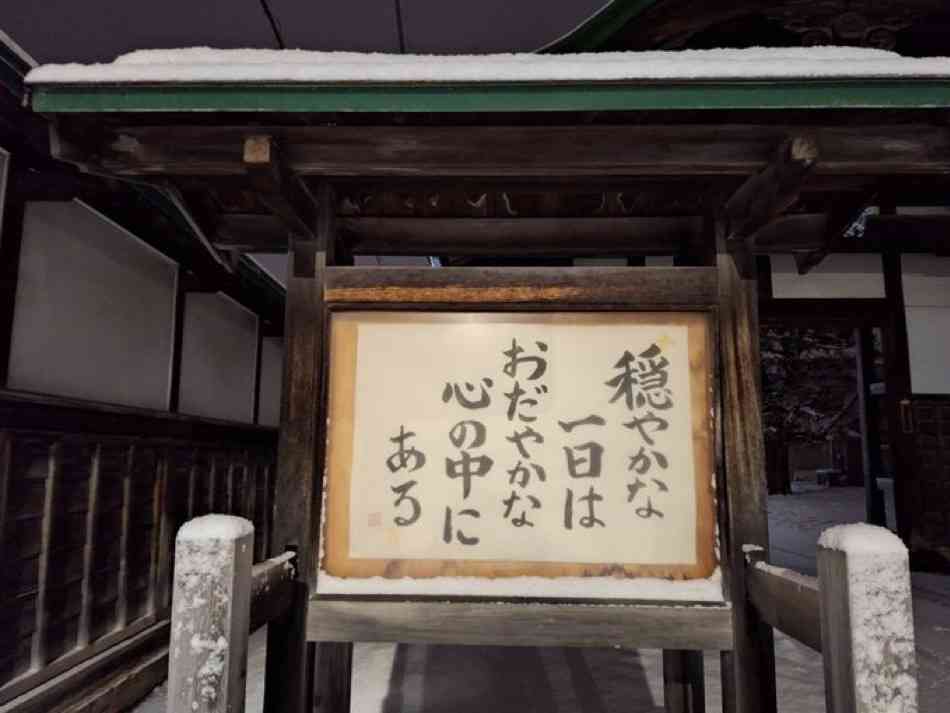 穏やかな
一日は
おだやかな
心の中に
ある